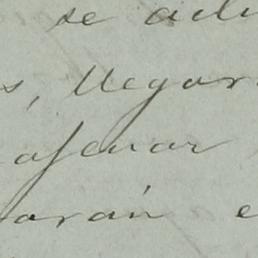 se
s, llegar
afenar
arán e